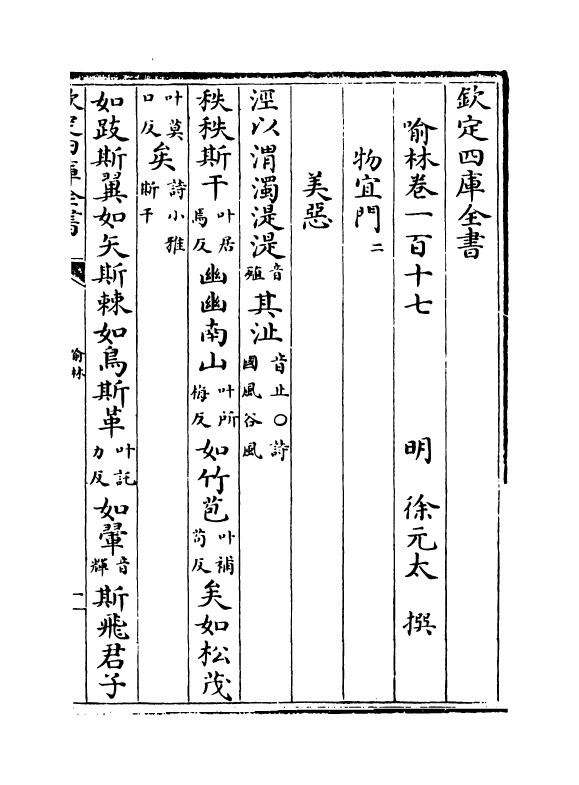 欽定四庫全書
喻林卷一百十七
明 徐元太 撰
物宜門二
美惡
涇以渭濁湜湜音殖其沚音止○詩國風谷風
秩秩斯干叶居焉反幽幽南山叶所旃反如竹苞叶補苟反矣如松茂
叶莫口反矣詩小雅斯干
如跂斯翼如矢斯棘如鳥斯革叶訖力反如翬音輝斯飛君子
欽定四庫全書
喻林
一